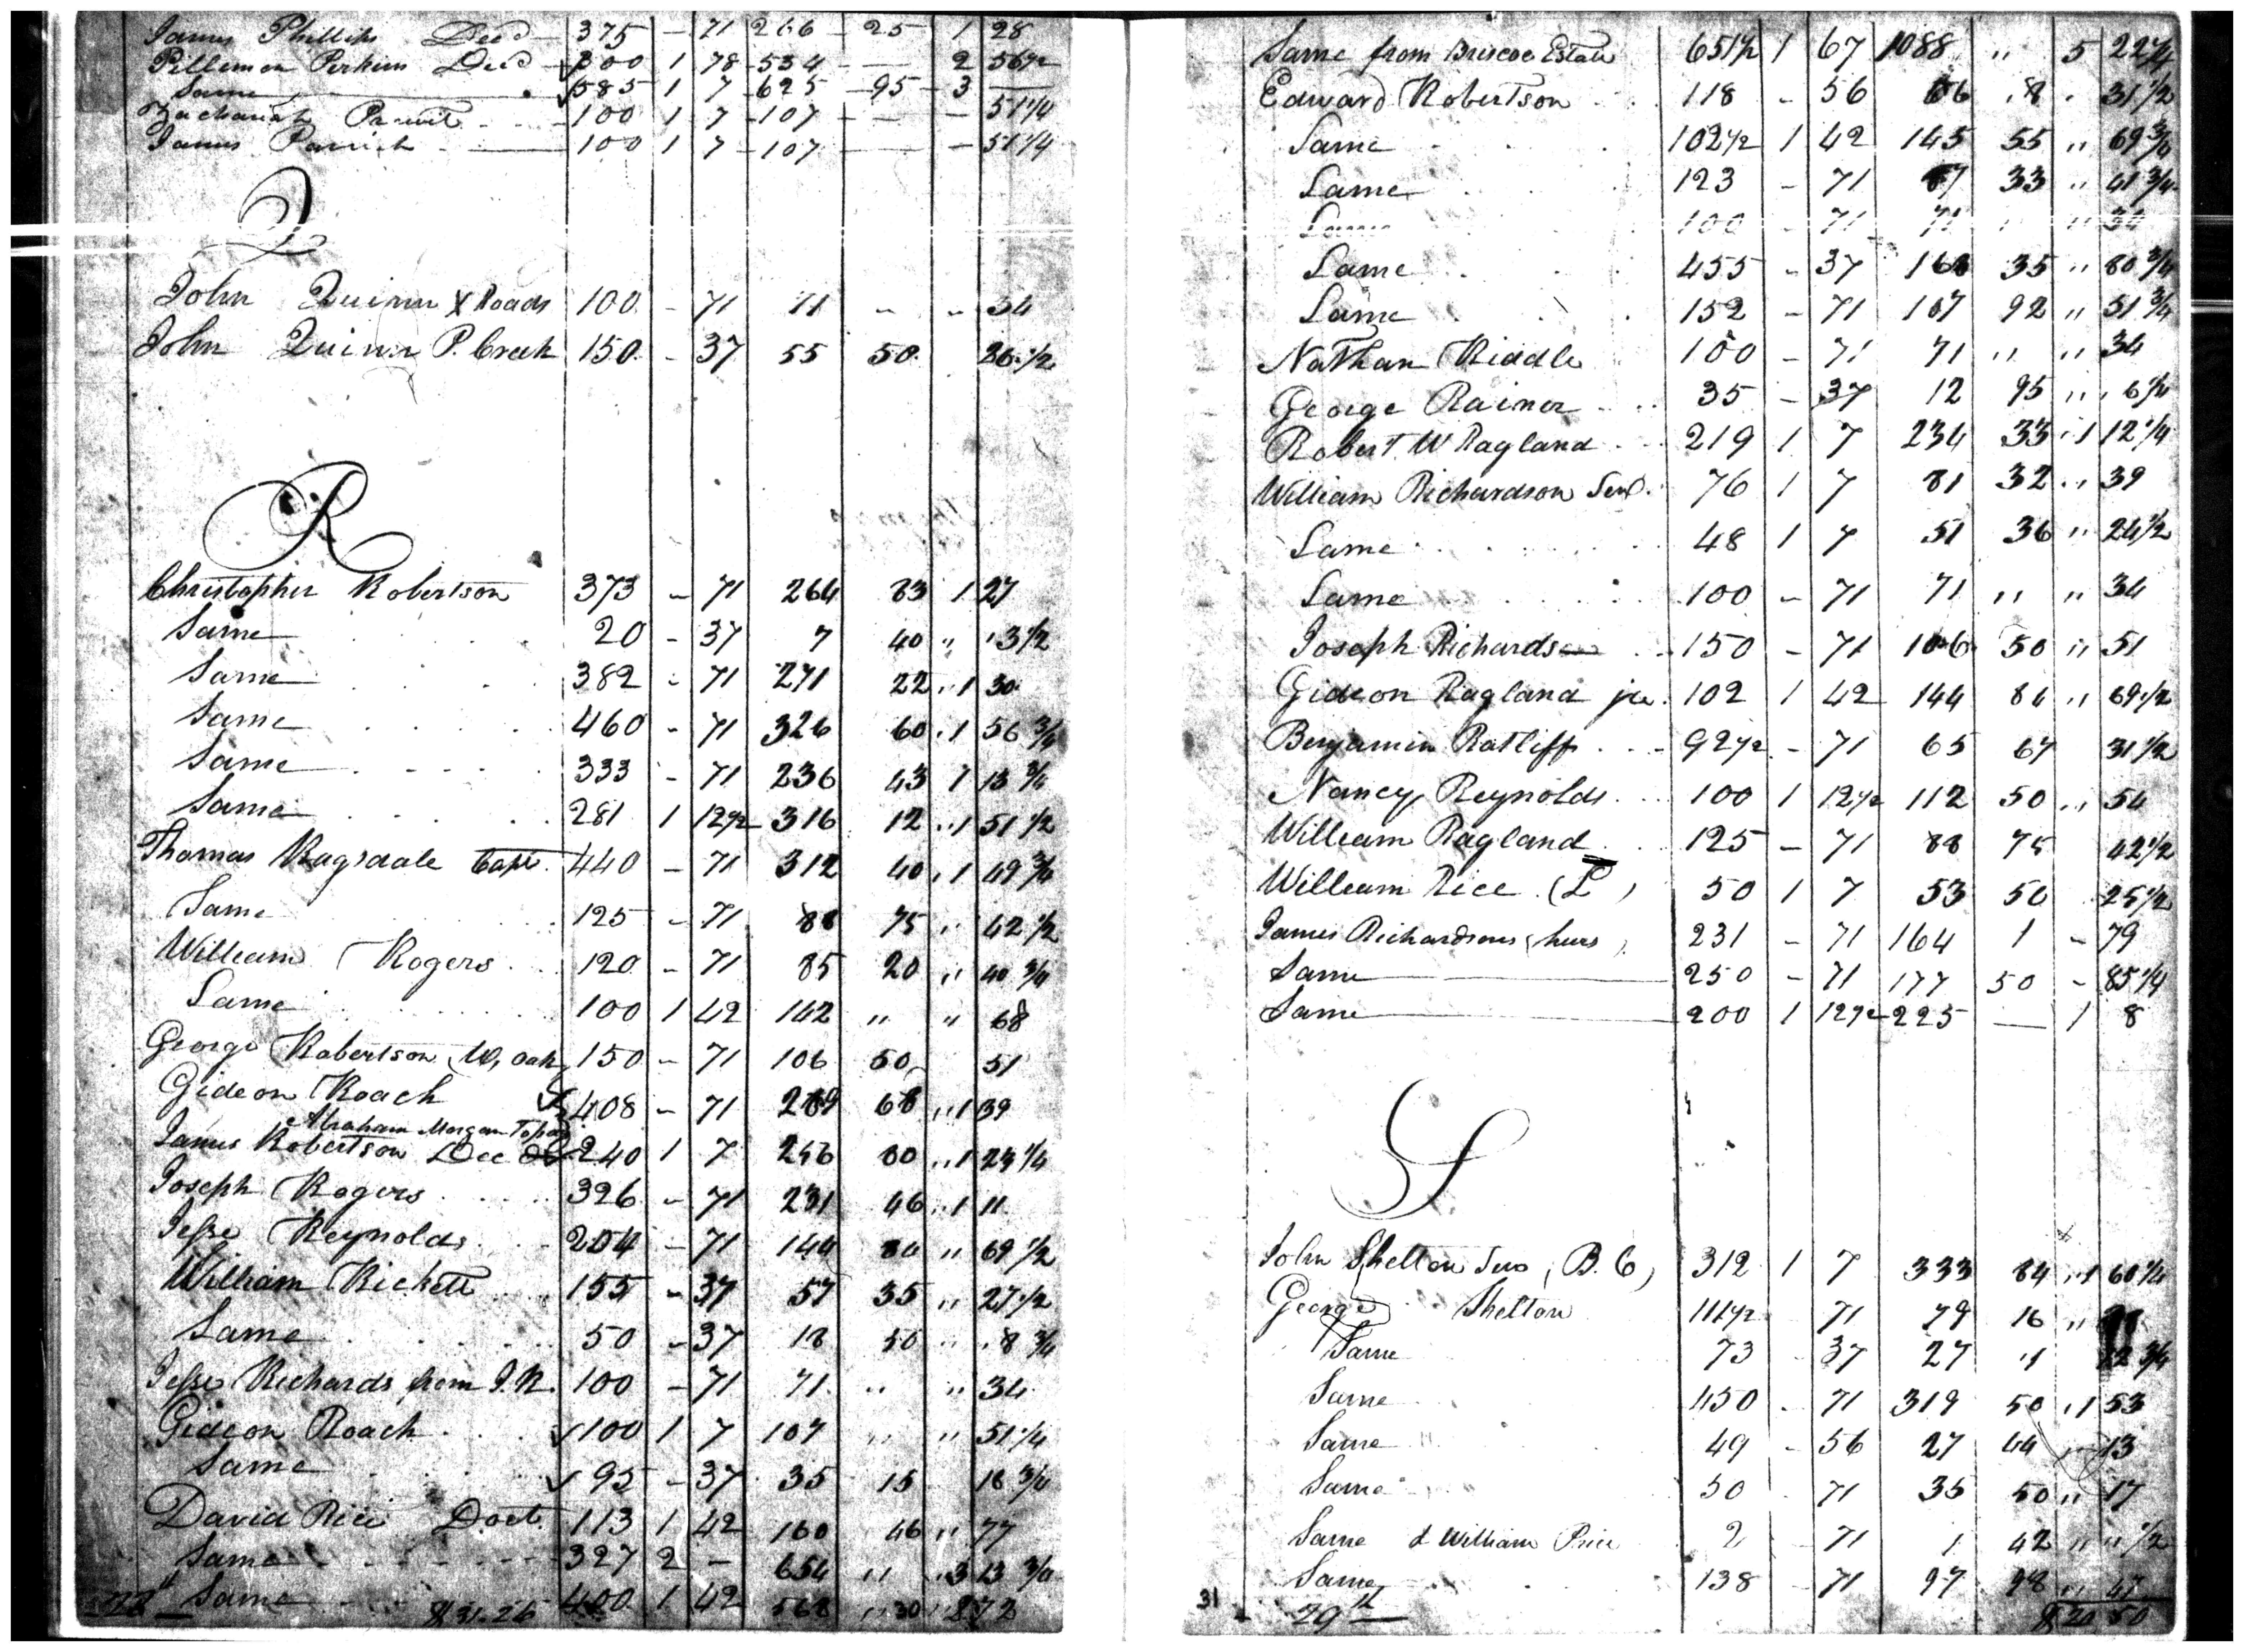 James Phillips Decd — 375 - 71 266 - 25 1 28
Pillemon Perkins Decd 300 1 78 534 — 2 56 1/2
Same 585 1 7 625 - 95 - 3 —
Zachariah 100 1 7 107 — — 51 1/4
James Parrish 100 1 7 107 — — 51 1/4
Q
John Quinn X Roads 100 - 71 71 - - 34
John Quinn P. Creek 150 - 37 55 50 26 1/2
R
Christopher Robertson 373 - 71 264 83 1 27
Same 20 - 37 7 40 " 3 1/2
Same 382 - 71 271 22 " 1 30
Same 460 - 71 326 60 1 56 3/4
Same 333 - 71 236 43 1 13 3/4
Same 281 1 12 1/2 316 12 " 1 51 1/2
Thomas Ragsdale Capt. 440 - 71 312 40 1 49 3/4
Same 125 - 71 88 75 " 42 1/2
William Rogers 120 - 71 85 20 " 40 3/4
Same 100 1 42 142 " " 68
George Robertson W, Oak 150 - 71 106 50 51
Gideon Roach 408 - 71 289 68 " 1 39
Abraham Morgan To pay
James Robertson Dec 240 1 7 256 80 " 1 23 1/4
Joseph Rogers 326 - 71 231 46 " 1 11
Jesse Reynolds 204 - 71 144 84 " 69 1/2
William Rickett 155 - 37 57 35 " 27 1/2
Same 50 - 37 18 50 " 8 3/4
Jesse Richards from J. R. 100 - 71 71 " " 34
Gideon Roach 100 1 7 107 " " 51 1/4
Same 95 - 37 35 15 16 3/4
David Rice Doct. 113 1 42 160 46 " 77
Same 327 2 - 654 " " 3 13 3/4
28th Same $31.26 400 1 42 568 " 30 " 2 72
Same from Briscoe Estate 651 1/2 1 67 1088 " 5 22 1/4
Edward Robertson 118 - 56 66 8 31 1/2
Same 102 1/2 1 42 145 55 " 69 3/4
Same 123 - 71 87 33 " 41 3/4
Same 100 - 71 71 " " 34
Same 455 - 37 168 35 " 80 3/4
Same 152 - 71 107 92 " 51 3/4
Nathan Riddle 100 - 71 71 " " 34
George Rainer 35 - 37 12 95 " 6 1/4
Robert W Ragland 219 1 7 234 33 1 12 1/4
William Richardson Senr. 76 1 7 81 32 " 39
Same 48 1 7 51 36 " 24 1/2
Same 100 - 71 71 " " 34
Joseph Richardson 150 - 71 106 50 " 51
Gideon Ragland jr. 102 1 42 144 84 " 69 1/2
Benjamin Ratliff 92 1/2 - 71 65 67 31 1/2
Nancy Reynolds 100 1 12 1/2 112 50 " 54
William Ragland 125 - 71 88 75 42 1/2
William Rice (L) 50 1 7 53 50 25 1/2
James Richardsons (heirs) 231 - 71 164 1 - 79
Same 250 - 71 177 50 - 85 1/4
Same 200 1 12 1/2 225 — 1 8
S
John Shelton Senr (B. C) 312 1 7 333 84 " 1 60 1/4
George Shelton 111 1/2 71 79 16 "
Same 73 - 37 27 1 12 3/4
Same 450 - 71 319 50 " 1 53
Same 49 - 56 27 44 13
Same 50 71 35 50 " 17
Same & William Price 2 71 1 42 " " 1/2
Same 138 - 71 97 98 " 47
31 29th $20 50